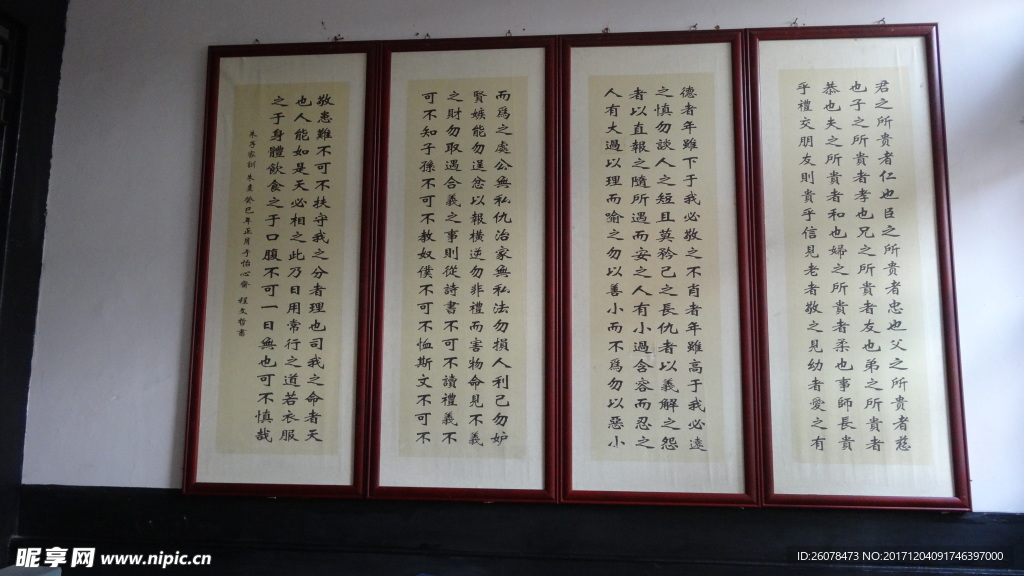 君之所貴者仁也臣之所貴者忠也父之所貴者慈
也子之所貴者孝也兄之所貴者友也弟之所貴者
恭也夫之所貴者和也婦之所貴者柔也事師長貴
乎禮交朋友則貴乎信見老者敬之見幼者愛之有
德者年雖下于我必敬之不肖者年雖高于我必遠
之慎勿談人之短且莫矜己之長仇者以義解之怨
者以直報之隨所遇而安之人有小過含容而忍之
人有大過以理而喻之勿以善小而不爲勿以惡小
而爲之處公無私仇治家無私法勿損人利己勿妒
賢嫉能勿逞忿以報橫逆勿非禮而害物命見不義
之財勿取遇合義之事則從詩書不可不讀禮義不
可不知子孫不可不教奴僕不可不恤斯文不可不
敬患難不可不扶守我之分者理也司我之命者天
也人能如是天必相之此乃日用常行之道若衣服
之于身體飲食之于口腹不可一日無也可不慎哉
朱子家訓 朱熹 癸巳年正月于怡心齋 程文哲書
昵享网 www.nipic.cn
ID:26078473 NO:20171204091746397000